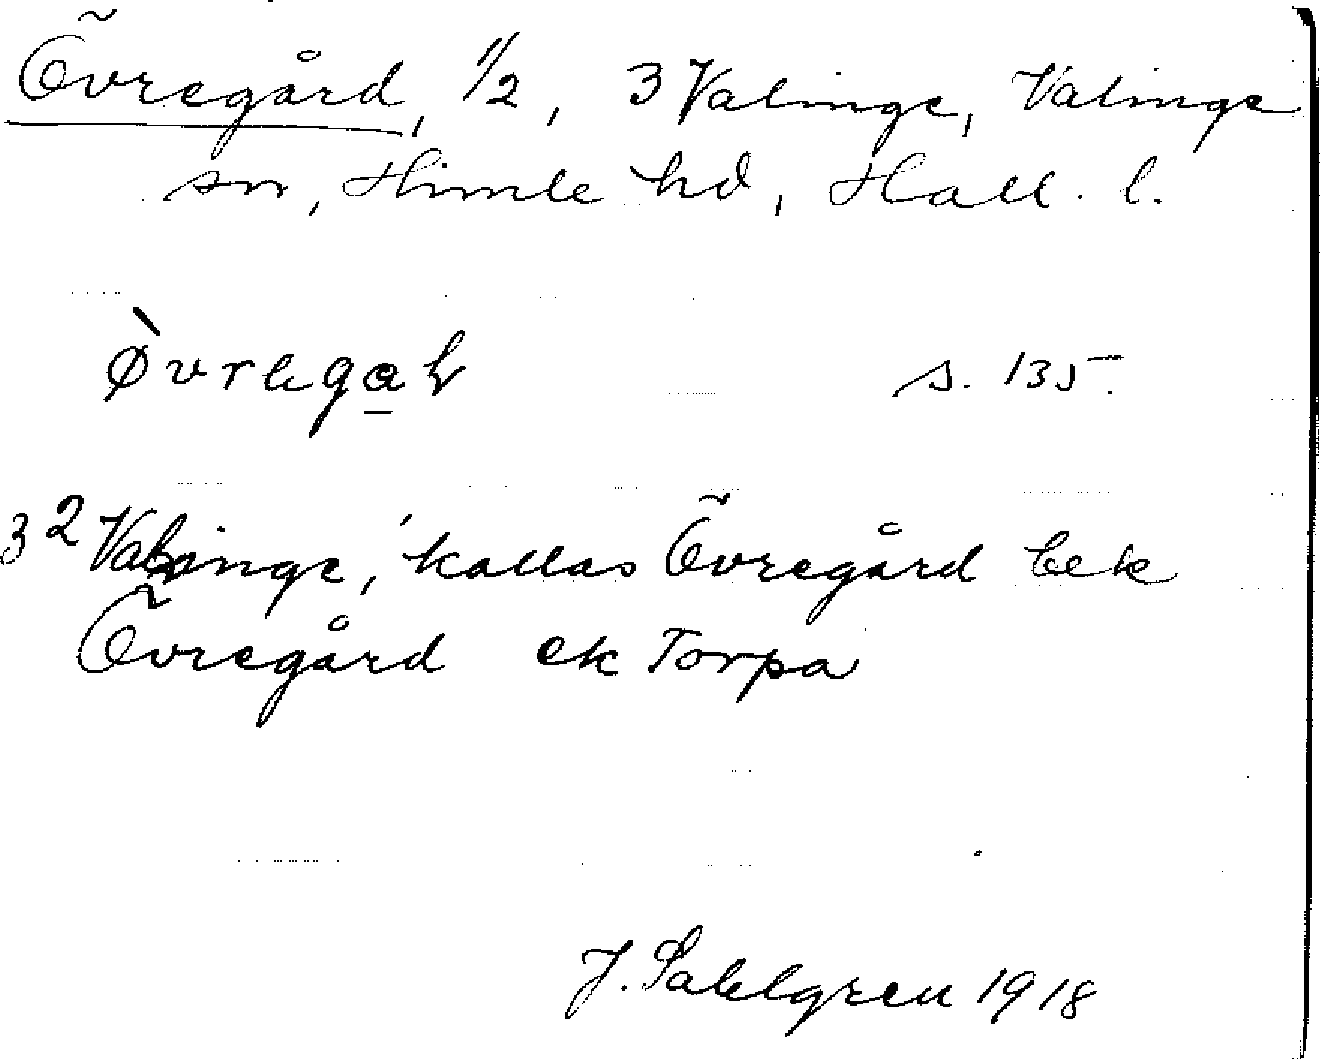 Övregård, 1/2, 3 Valinge, Valinge
sn, Himle hd, Hall. l.
s. 135.
3 2 Valinge, kallas Övregård bek
Övregård ek Torpa
J. Sahlgren 1918